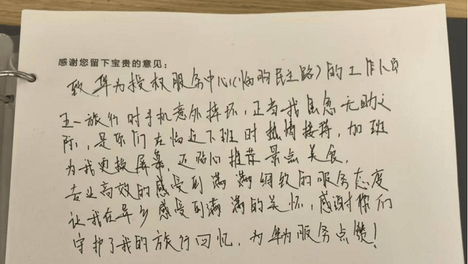 感谢您留下宝贵的意见:
致华为授权服务中心(临沂民主路)的工作人员
旅行时手机意外摔坏,正当我焦急无助之
际,是你们在临近下班时热情接待,加班
为我更换屏幕,还贴心推荐景点美食。
专业高效的感受到满满细致的服务态度
让我在异乡感受到满满的关怀,感谢你们
守护了我的旅行回忆,为华为服务点赞!